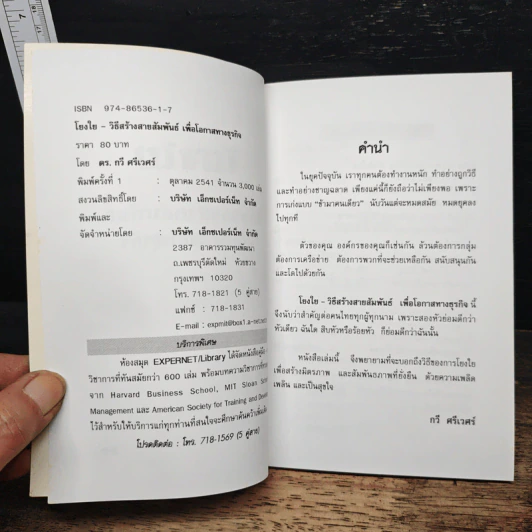 ISBN 974-86536-1-7
โยงใย - วิธีสร้างสายสัมพันธ์ เพื่อโอกาสทางธุรกิจ
ราคา 80 บาท
โดย ดร. กวี ศรีเวศร์
พิมพ์ครั้งที่ 1 : ตุลาคม 2541 จำนวน 3,000 เล่ม
สงวนลิขสิทธิ์โดย : บริษัท เอ็กซเปอร์เน็ท จำกัด
พิมพ์และ
จัดจำหน่ายโดย : บริษัท เอ็กซเปอร์เน็ท จำกัด
2387 อาคารรวมทุนพัฒนา
ถ.เพชรบุรีตัดใหม่ ห้วยขวาง
กรุงเทพฯ 10320
โทร. 718-1821 (5 คู่สาย)
แฟกซ์ : 718-1831
E-mail : expmit@box1.a-net.
บริการพิเศษ
ห้องสมุด EXPERNET/Library ได้จัดหนังสือคู่มือ
วิชาการที่ทันสมัยกว่า 600 เล่ม พร้อมบทความวิชาการ
จาก Harvard Business School, MIT Sloan
Management และ American Society for Training and
ไว้สำหรับให้บริการแก่ทุกท่านที่สนใจจะศึกษาค้นคว้าเพิ่มเติม
โปรดติดต่อ : โทร. 718-1569 (5 คู่สาย)
คำนำ
ในยุคปัจจุบัน เราทุกคนต้องทำงานหนัก ทำอย่างถูกวิธี
และทำอย่างชาญฉลาด เพียงแค่นี้ก็ยังถือว่าไม่เพียงพอ เพราะ
การเก่งแบบ "ข้ามาคนเดียว" นับวันแต่จะหมดสมัย หมดยุคลง
ไปทุกที
ตัวของคุณ องค์กรของคุณก็เช่นกัน ล้วนต้องการกลุ่ม
ต้องการเครือข่าย ต้องการพวกที่จะช่วยเหลือกัน สนับสนุนกัน
และโตไปด้วยกัน
โยงใย - วิธีสร้างสายสัมพันธ์ เพื่อโอกาสทางธุรกิจ นี้
จึงนับว่าสำคัญต่อคนไทยทุกผู้ทุกนาม เพราะสองหัวย่อมดีกว่า
หัวเดียว ฉันใด สิบหัวหรือร้อยหัว ก็ย่อมดีกว่าฉันนั้น
หนังสือเล่มนี้ จึงพยายามที่จะบอกถึงวิธีของการโยงใย
เพื่อสร้างมิตรภาพ และสัมพันธภาพที่ยั่งยืน ด้วยความเพลิด
เพลิน และเป็นสุขใจ
กวี ศรีเวศร์